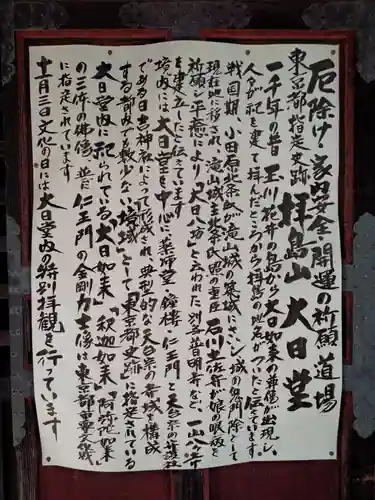 厄除け・家内安全・開運の祈願道場
東京都指定史跡 拝島山 大日堂
一千年の昔 玉川 花井の島から大日如来の尊像が出現し、
人々が祀を建て拝んだところから拝島の地名がついたと伝えています。
戦国期、小田原北条氏が滝山城の築城に 城の鬼門除として
現在地に移され、滝山城主北条氏照の重臣 石川土佐守が娘の眼病を
祈願し平癒により「大日八坊」と云われた別当普明寺など、一山八ヶ寺
を建立したと伝えています。
境内には 大日堂を中心に薬師堂、鐘楼、仁王門と天台宗の
である日吉神社によって形成され、典型的な天台宗の寺域を構成
する都内でも数少ない「境域」として「東京都史跡」に指定されている
大日堂内に祀られている大日如来「釈迦如来」「阿弥陀如来」
の三体の佛像 並に仁王門の金剛力士像は東京都
に指定されています。
十一月三日文化の日には大日堂内の特別拝観を行っています